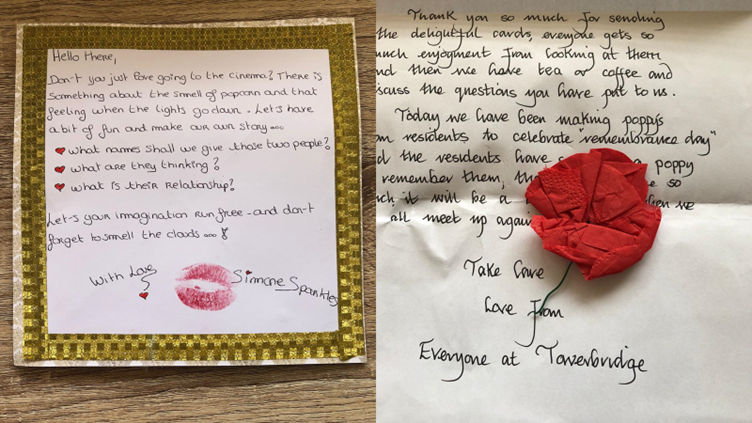 Hello there,
Don't you just love going to the cinema? There is
something about the smell of popcorn and that
feeling when the lights go down. Let's have
a bit of fun and make our own story ....
what names shall we give those two people?
what are they thinking?
what is their relationship?
Let's your imagination run free - and don't
forget to smell the clouds ...!
With Love
Simone Sparkles
Thank you so much for sending
the delightful cards, everyone gets so
much enjoyment from looking at them
and then we have tea or coffee and
discuss the questions you have put to us.
Today we have been making poppy's
residents to celebrate "remembrance day"
the residents have a poppy
remember them, so
it will be a we
all meet up again
Take Care
Love From
Everyone at Towerbridge